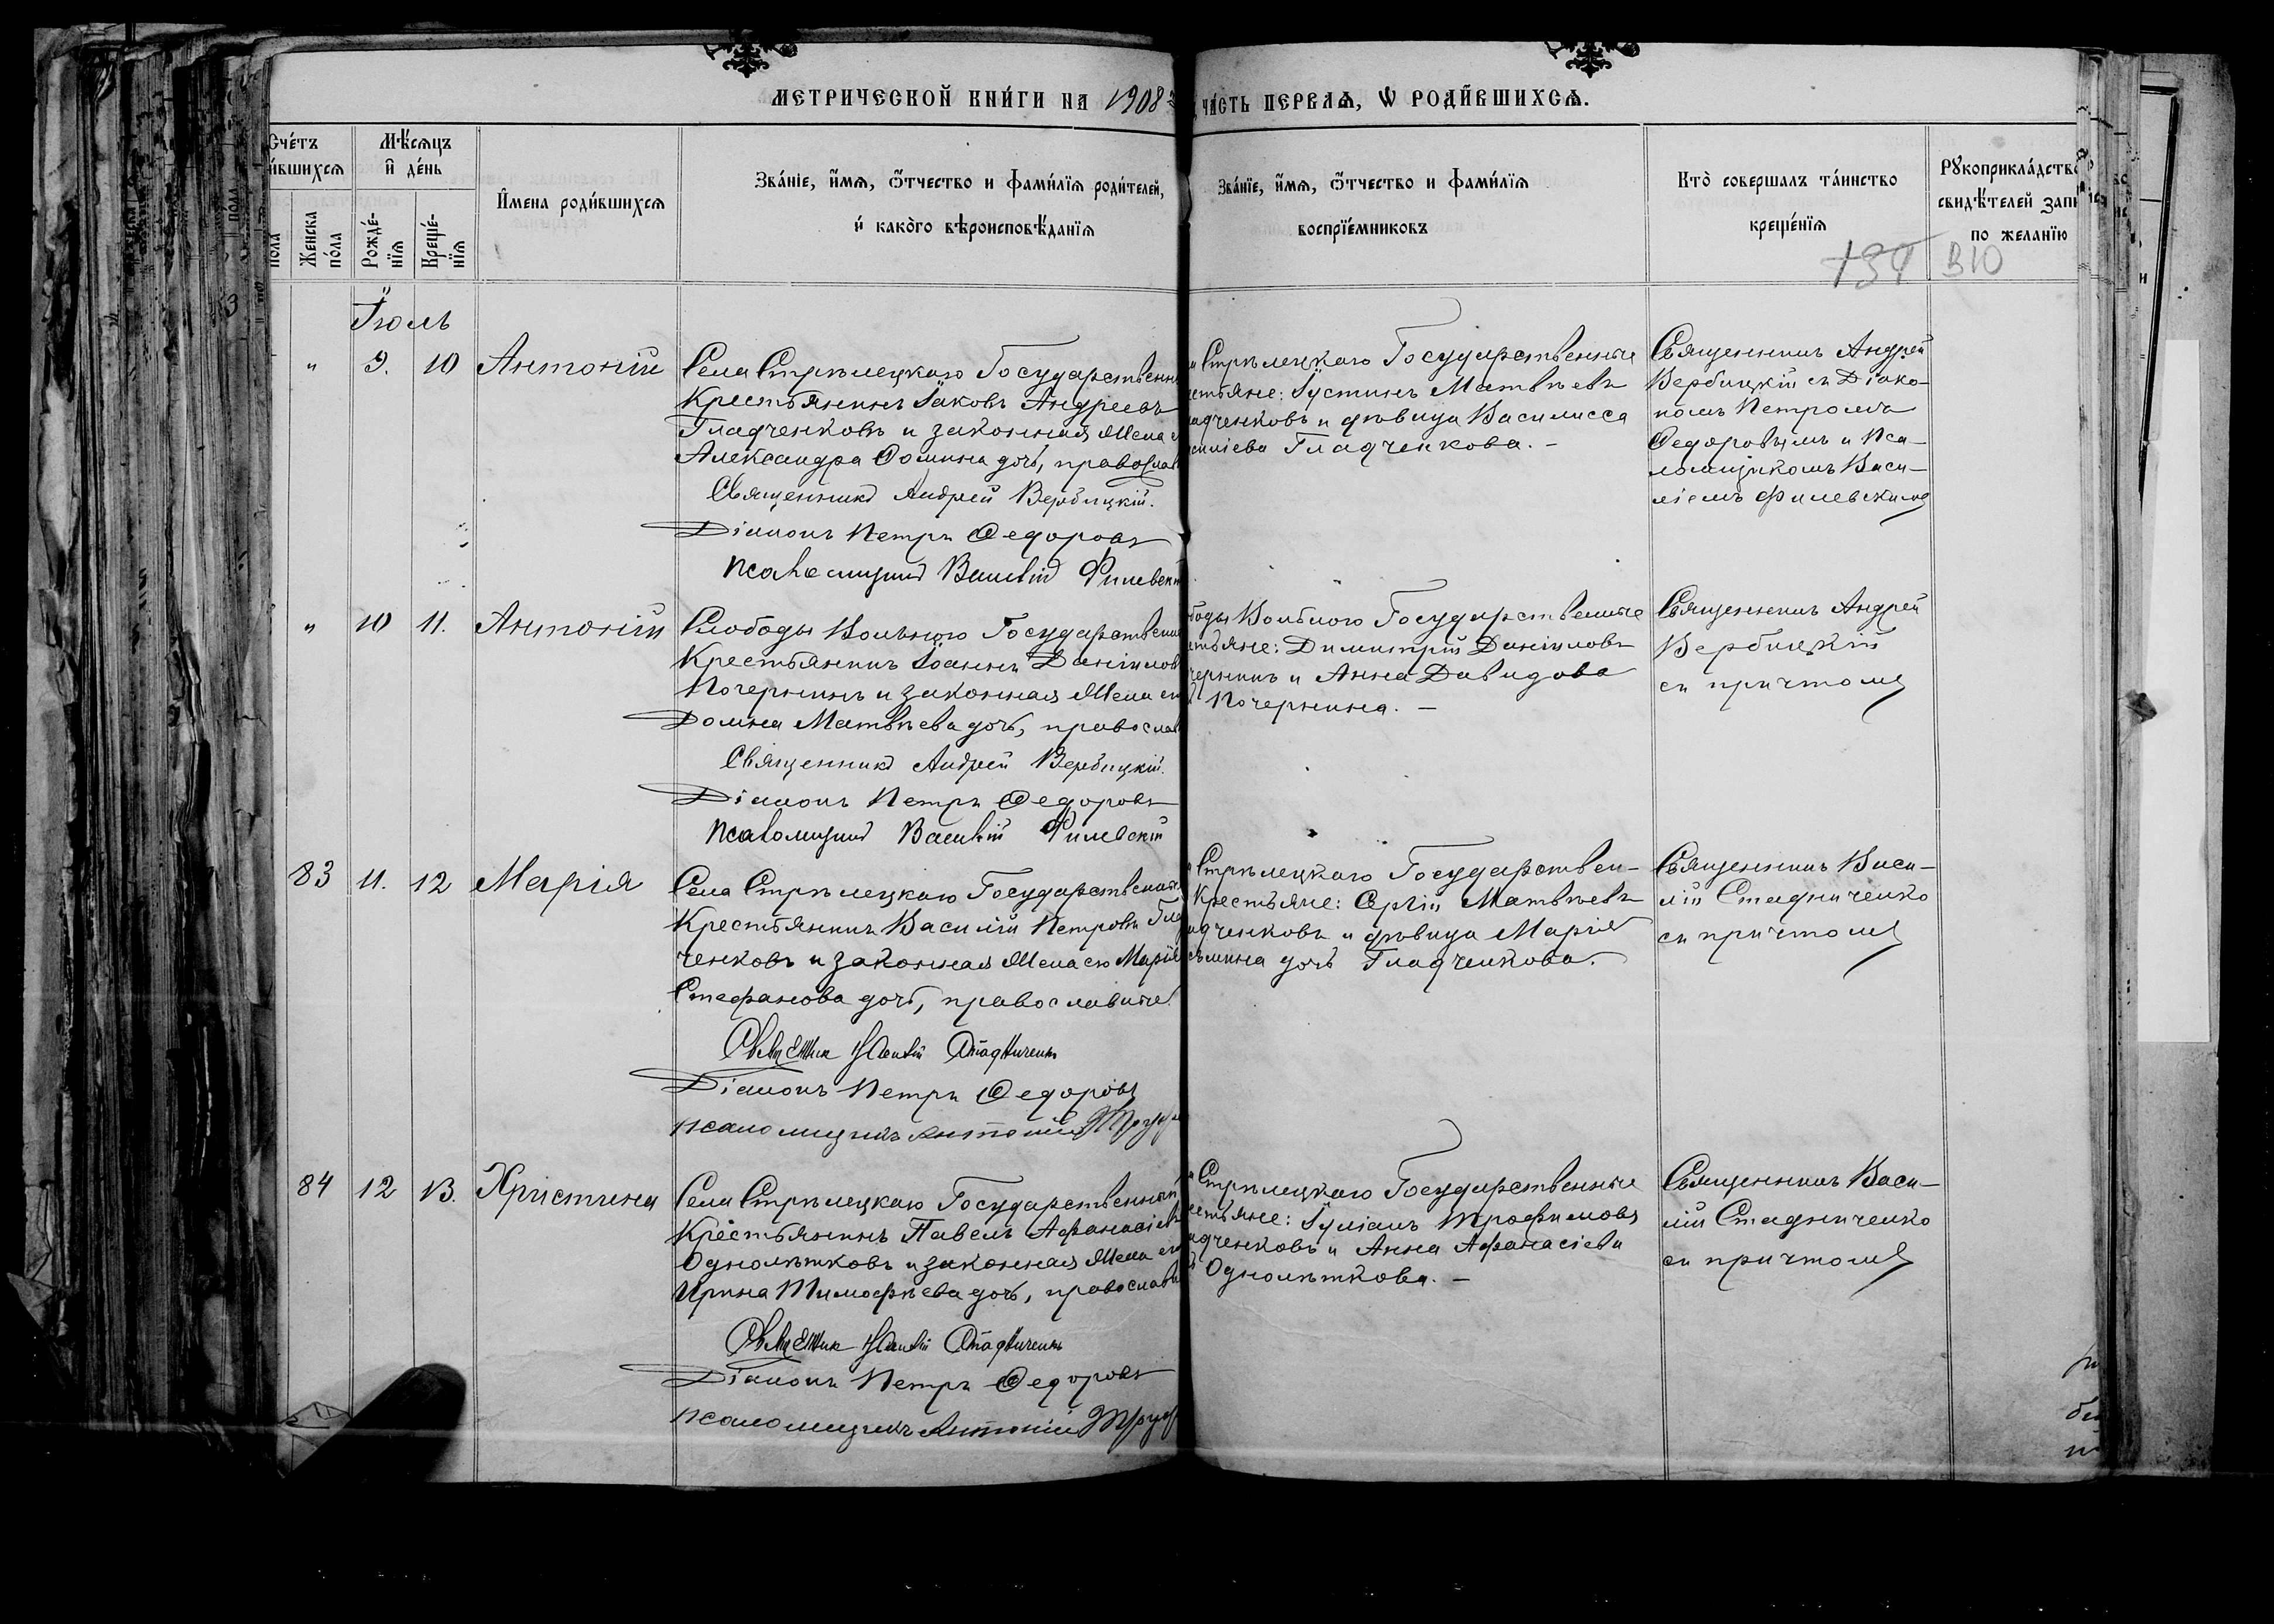 МЕТРИЧЕСКОЙ КНИ́ГИ НА 1908
ЧА́СТЬ ПЕРВАѦ, Ѡ РОДИ́ВШИХСѦ.
Сче́тъ
и́вшихсѧ
Мѣ́сѧцъ
и҆ де́нь
И҆мена роди́вшихсѧ
Зва́нїе, и҆́мѧ, ѻ҆́тчество и фами́лїѧ роди́телей,
и҆ како́го вѣроисповѣ́данїѧ
Зва́нїе, и҆́мѧ, ѻ҆́тчество и фами́лїѧ
воспрїе́мниковъ
Кто̀ совершалъ та́инство
креще́нїѧ
Рꙋкоприкла́дство
свидѣ́телей запи
по жела́нїю
пола
Женска
по́ла
Рожде́-
нїѧ
Креще́-
нїѧ
Іюль
" 9. 10 Антоній
Села Стрѣлецкаго Государственн
Крестьянинъ Іаковъ Андреевъ
Гладченковъ и законная Жена е
Александра Ѳомина дочь, православ
Священникъ Андрей Вербицкій.
Діаконъ Петръ Ѳедоровъ
Псаломщикъ Василій Филевскі
Стрѣлецкаго Государственные
естьяне: Іустинъ Матвѣевъ
адченковъ и дѣвица Василисса
силіева Гладченкова. –
Священникъ Андрей
Вербицкій съ Діако-
номъ Петромъ
Ѳедоровымъ и Пса-
ломщикомъ Васи-
ліемъ Филевскимъ
" 10 11. Антоній
Слободы Вольного Государственн
Крестьянинъ Іоаннъ Даніилов
Почернинъ и законная Жена ег
Домна Матвѣева дочь, православ
Священникъ Андрей Вербицкій.
Діаконъ Петръ Ѳедоровъ
Псаломщикъ Василій Филевскій
боды Вольного Государственные
естьяне: Димитрій Даніиловъ
чернинъ и Анна Давидова
Почернина. –
Священникъ Андрей
Вербицкій
съ причтомъ
83 11. 12 Марія
Села Стрѣлецкаго Государственный
Крестьянинъ Василій Петровъ Гла
ченковъ и законная Жена его Марія
Стефанова дочь, православные
Священник Василій Стадниченко
Діаконъ Петръ Ѳедоровъ
псаломщикъ Антоній
Стрѣлецкаго Государствен-
Крестьяне: Сергій Матвѣевъ
адченковъ и дѣвица Марія
сьмина дочь Гладченкова.
Священникъ Васи-
лій Стадниченко
съ причтомъ
84 12 13. Христина
Села Стрѣлецкаго Государственный
Крестьянинъ Павелъ Афанасіевъ
Однолѣтковъ и законная Жена ег
Ирина Тимофѣева дочь, православн
Священник Василій Стадниченко
Діаконъ Петръ Ѳедоровъ
псаломщикъ Антоній
Стрѣлецкаго Государственные
естьяне: Іуліанъ Трофимовъ
адченковъ и Анна Афанасіева
Однолѣткова. –
Священникъ Васи-
лій Стадниченко
съ причтомъ